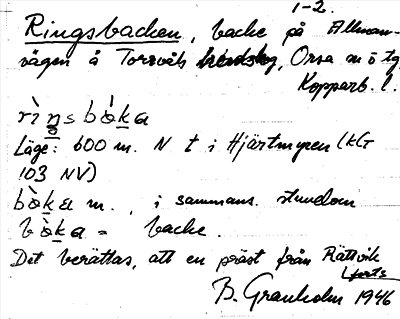 1-2.
Ringsbacken, backe på Allman-
vägen å Torsviks, Orsa sn ö tg
Kopparb. l.
rìŋsbàka
Läge: 600 m. N t i Hjärtmyren (kG
103 NV)
bàka m., i sammans. stundom
bàka = backe.
Det berättas, att en präst från Rättvik
forts
B. Granholm 1946